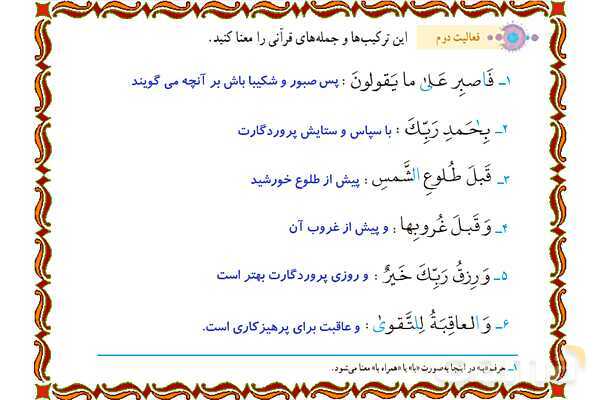 فعالیت دوم
این ترکیب‌ها و جمله‌های قرآنی را معنا کنید.
۱ـ فَاصبِر عَلیٰ ما یَقولونَ : پس صبور و شکیبا باش بر آنچه می گویند
۲ـ بِحَمدِ رَبِّكَ : با سپاس و ستایش پروردگارت
۳ـ قَبلَ طُلوعِ الشَّمسِ : پیش از طلوع خورشید
۴ـ وَ قَبلَ غُروبِها : و پیش از غروب آن
۵ـ وَ رِزقُ رَبِّكَ خَیرٌ : و روزی پروردگارت بهتر است
۶ـ وَ العاقِبَةُ لِلتَّقویٰ : و عاقبت برای پرهیزکاری است.
۱ـ حرف «بـ» در اینجا به‌صورت «با» یا «همراه با» معنا می‌شود.